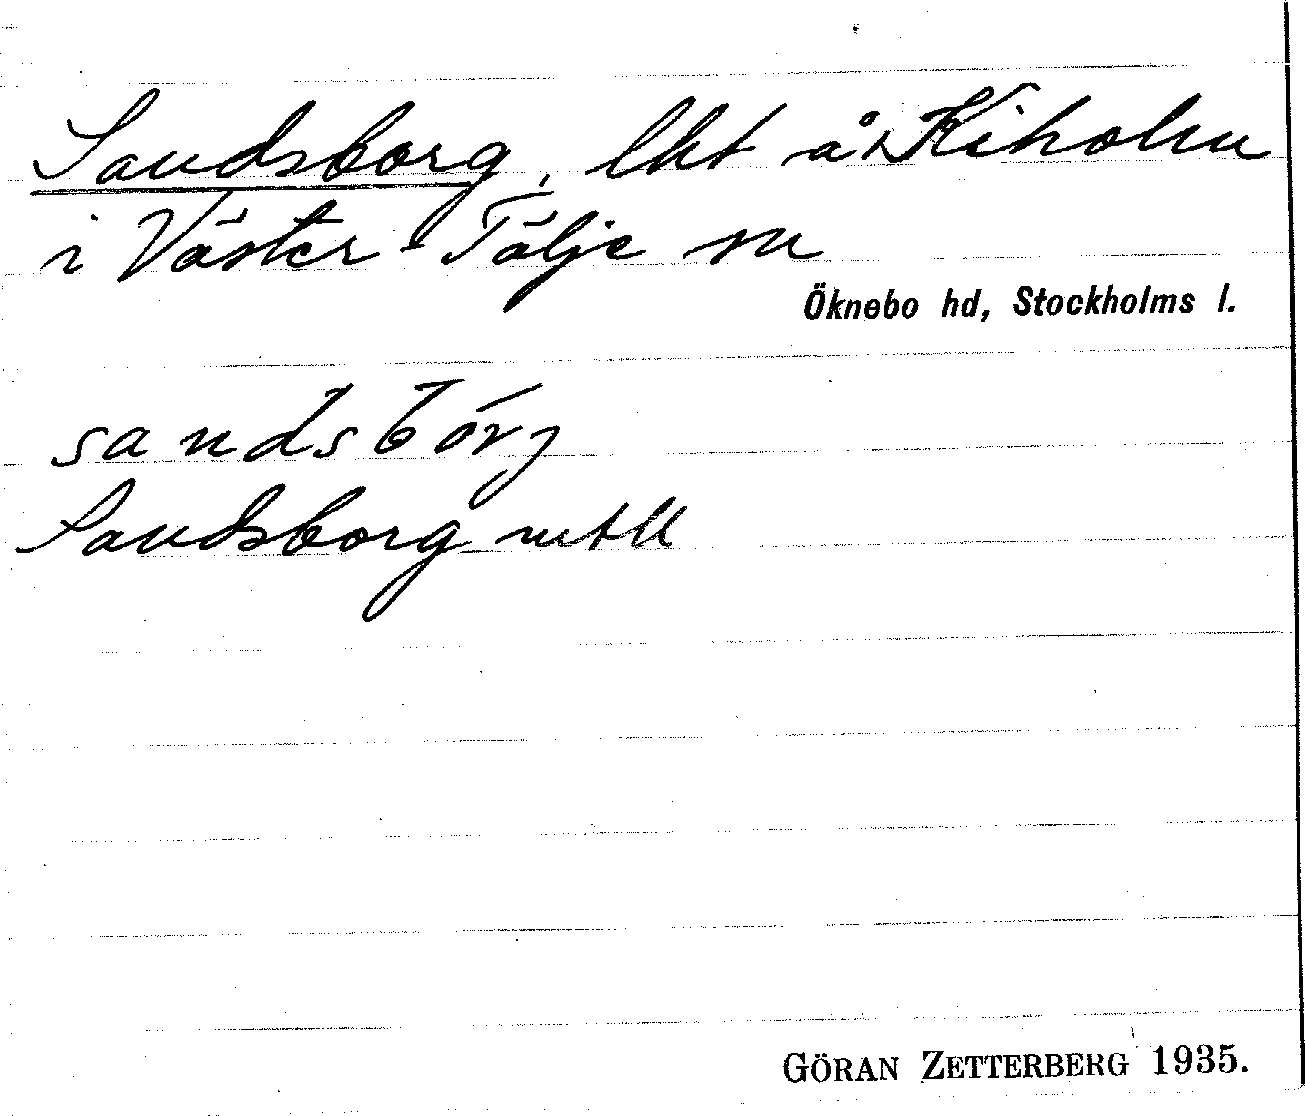 Sandsborg, lht å Kiholm
i Väster-Tälje sn
Öknebo hd, Stockholms l.
sandsbórj
Sandsborg mtll
GÖRAN ZETTERBERG 1935.